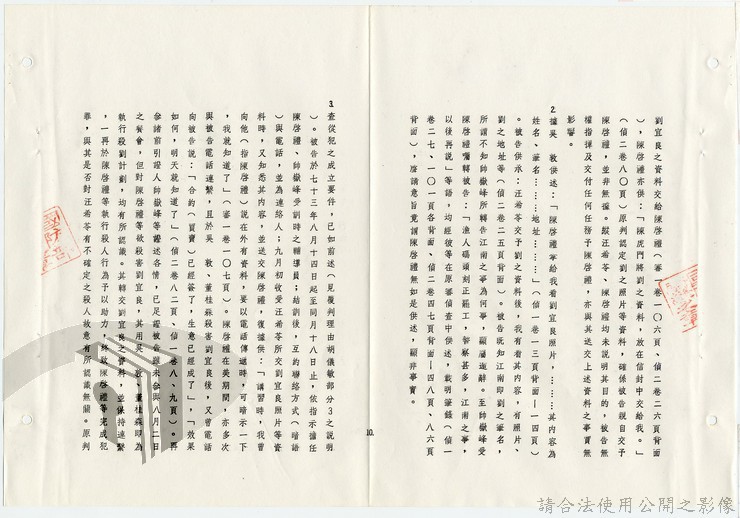 劉宜良之資料交給陳啓禮（審一卷一〇六頁、偵二卷二六頁背面
），陳啓禮亦供：「陳虎門將劉之資料，放在信封中交給我。」
（偵二卷八〇頁）原判認定劉之照片等資料，確係被告親自交予
陳啓禮，並非無據。縱汪希苓、陳啓禮均未說明其目的，被告無
權指揮及交付任何任務予陳啓禮，亦與其送交上述資料之事實無
影響。
2.據吳　敦供述：「陳啓禮拿給我看劉宜良照片，………其內容為
姓名、筆名………地址………」（偵一卷一三頁背面－一四頁）
。被告供承：汪希苓交予劉之資料後，我有看其內容，有照片、
劉之地址等（偵二卷二五頁背面）。被告既知江南即劉之筆名，
所謂不知帥嶽峰所轉告江南之事為何事，顯屬遁辭。至帥嶽峰受
陳啓禮囑轉被告：「漁人碼頭刻正罷工，警察甚多，江南之事，
以後再說」等語，均經彼等在原審偵查中供述，載明筆錄（偵一
卷二七、一〇一頁各背面、偵二卷四七頁背面－四八頁、八六頁
背面），聲請意旨竟謂陳啓禮無如是供述，顯非事實。
10.
3.查從犯之成立要件，已如前述（見覆判理由胡儀敏部分3之說明
）。被告於七十三年八月十四日起至同月十八日止，依指示擔任
陳啓禮、帥嶽峰受訓時之輔導員；結訓後，互約聯絡方式（暗語
）與電話，並為連絡人；九月初收受汪希苓所交劉宜良照片等資
料時，又知悉其內容，並送交陳啓禮，復據供：「講習時，我曾
向他（指陳啓禮）說在外有資料，要以電話傳遞時，可暗示一下
，我就知道了」（審一卷一〇七頁）。陳啓禮在美期間，亦多次
與被告電話連繫，且於吳　敦、董桂森殺害劉宜良後，又曾電話
向被告說：「合約（買賣）已經簽了，生意已經成了」，「效果
如何，明天就知道了」（偵二卷八二頁、偵一卷八、九頁）。再
參諸前引證人帥嶽峰等證述各情，已足證被告雖未參與八月二日
之餐會，但對陳啓禮等欲殺害劉宜良，其用吳　敦、董桂森即為
執行殺劉計劃，均有所認識。其轉交劉宜良之資料，並保持連繫
，一再於陳啓禮等執行殺人行為予以助力，終致陳啓禮等完成犯
罪，與其是否對汪希苓有不確定之殺人故意有所認識無關。原判
請合法使用公開之影像